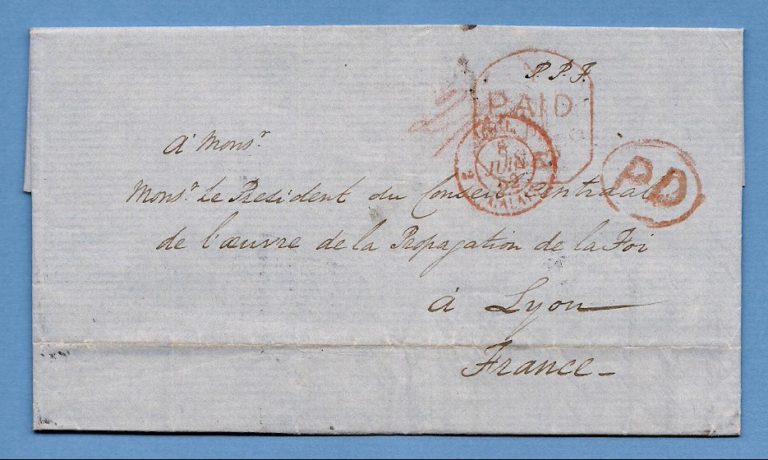 P.P.F.
PAID
à Monsr
5
JUIN
PD
Monsr Le President du Conseil Central
de l'œuvre de la Propagation de la Foi
à Lyon
France